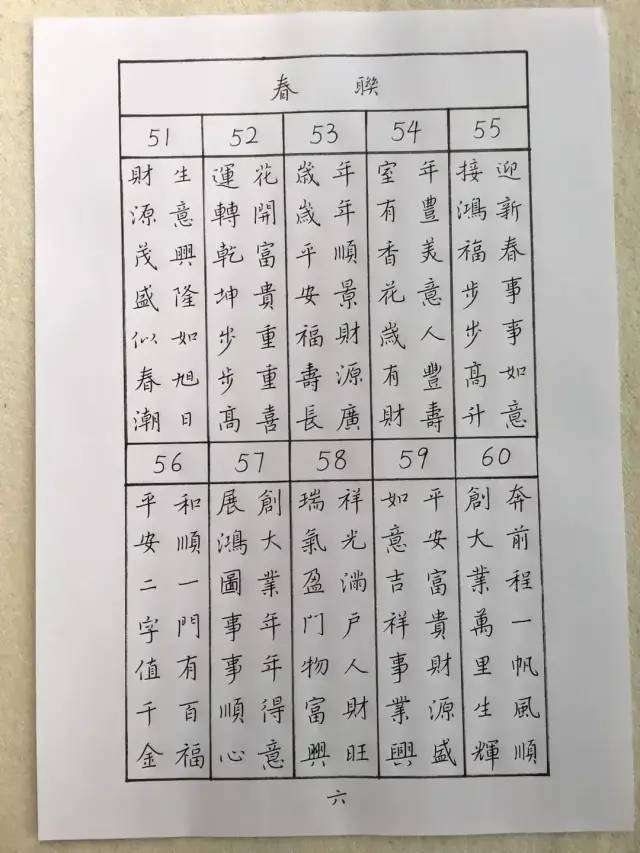 春聯
51
生意興隆如旭日
財源茂盛似春潮
52
花開富貴重重喜
運轉乾坤步步高
53
年年順景財源廣
歲歲平安福壽長
54
年豐美意人豐壽
室有香花歲有財
55
迎新春事事如意
接鴻福步步高升
56
和順一門有百福
平安二字值千金
57
創大業年年得意
展鴻圖事事順心
58
祥光滿戶人財旺
瑞氣盈门物富興
59
平安富貴財源盛
如意吉祥事業興
60
奔前程一帆風順
創大業萬里生輝
六